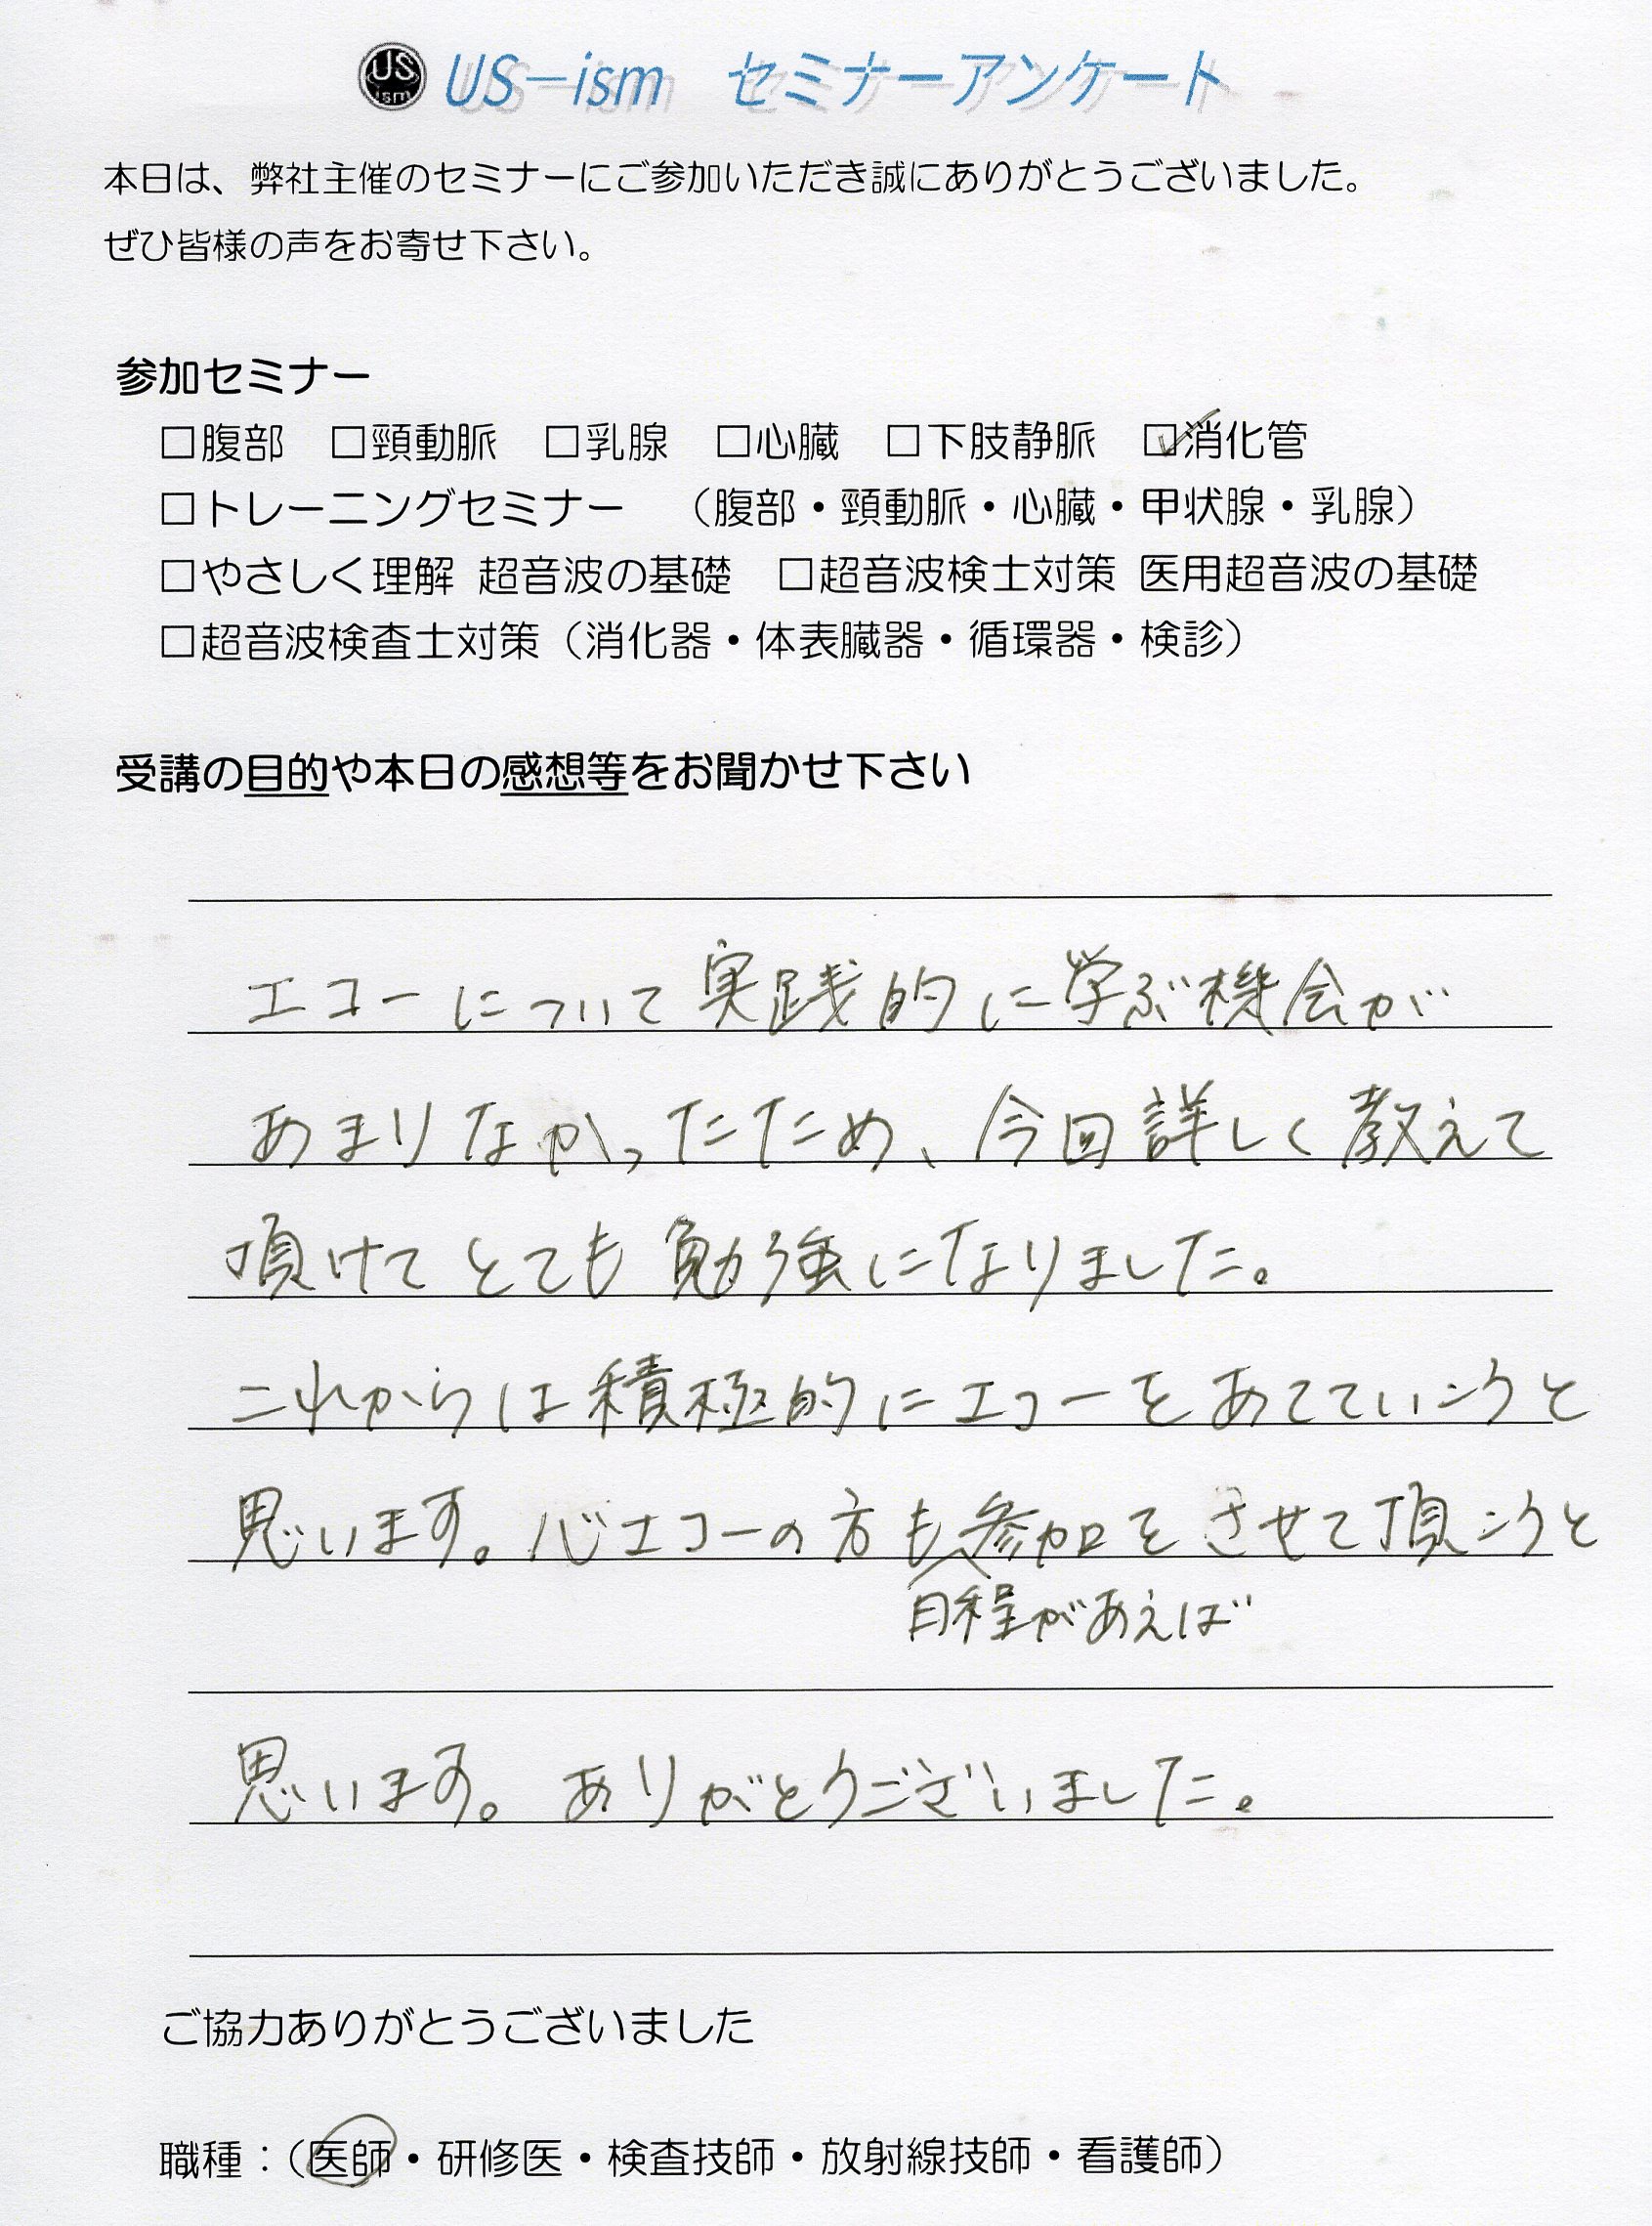 US ism US-ism セミナーアンケート
本日は、弊社主催のセミナーにご参加いただき誠にありがとうございました。
ぜひ皆様の声をお寄せ下さい。
参加セミナー
□腹部 □頸動脈 □乳腺 □心臓 □下肢静脈 ☑消化管
□トレーニングセミナー （腹部・頸動脈・心臓・甲状腺・乳腺）
□やさしく理解 超音波の基礎 □超音波検士対策 医用超音波の基礎
□超音波検査士対策（消化器・体表臓器・循環器・検診）
受講の目的や本日の感想等をお聞かせ下さい
エコーについて実践的に学ぶ機会が
あまりなかったため、今回詳しく教えて
頂けてとても勉強になりました。
これからは積極的にエコーをあてていこうと
思います。心エコーの方も参加をさせて頂こうと
日程があえば
思います。ありがとうございました。
ご協力ありがとうございました
職種：（医師・研修医・検査技師・放射線技師・看護師）